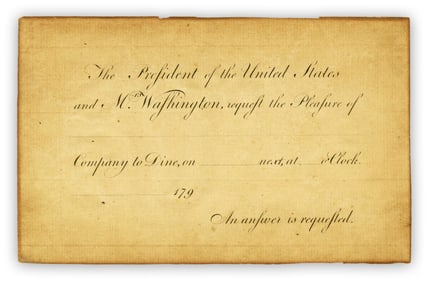 The Preſident of the United States
and M.rs Waſhington, requeſt the Pleaſure of
Company to Dine, on ________ next, at ____ o'Clock.
________ 179
An anſwer is requeſted.